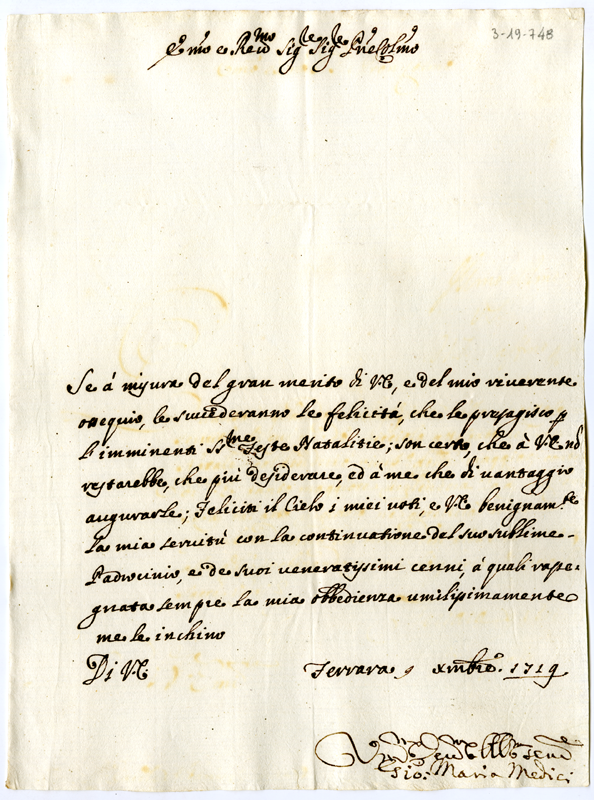 3-19-748
Emo e Remo Sigre Sigre Pne Colmo
Se á misura del gran merito di VE, e del mio riverente
ossequio, le succederanno le felicitá, che le presagisco p
l'imminenti Sme Feste Natalitie; son certo, che á VE nò
restarebbe, che più desiderare, ed á me che di vantaggio
augurarle; Feliciti il Cielo i miei voti, e VE benignamte
la mia servitù con la continuatione del suo sublime
Padrocinio, e de suoi veneratissimi cenni, á quali rasse-
gnata sempre la mia obbedienza umilissimamente
me le inchino
Di VE
Ferrara 9 Xmbre 1719
Gio: Maria Medici